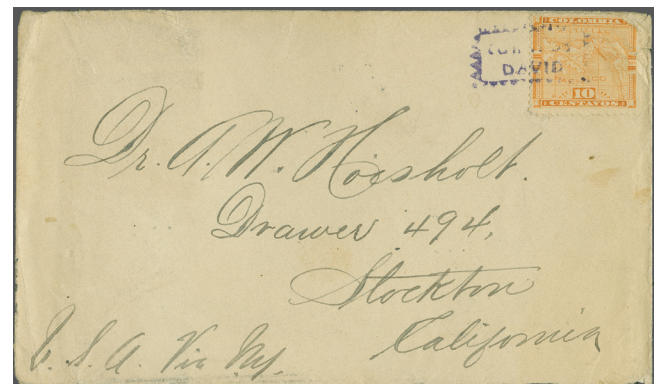 DAVID
COLOMBIA
10
CENTAVOS
Dr. A. W. Hoisholt.
Drawer 494,
Stockton
California
U. S. A. Via Ny.